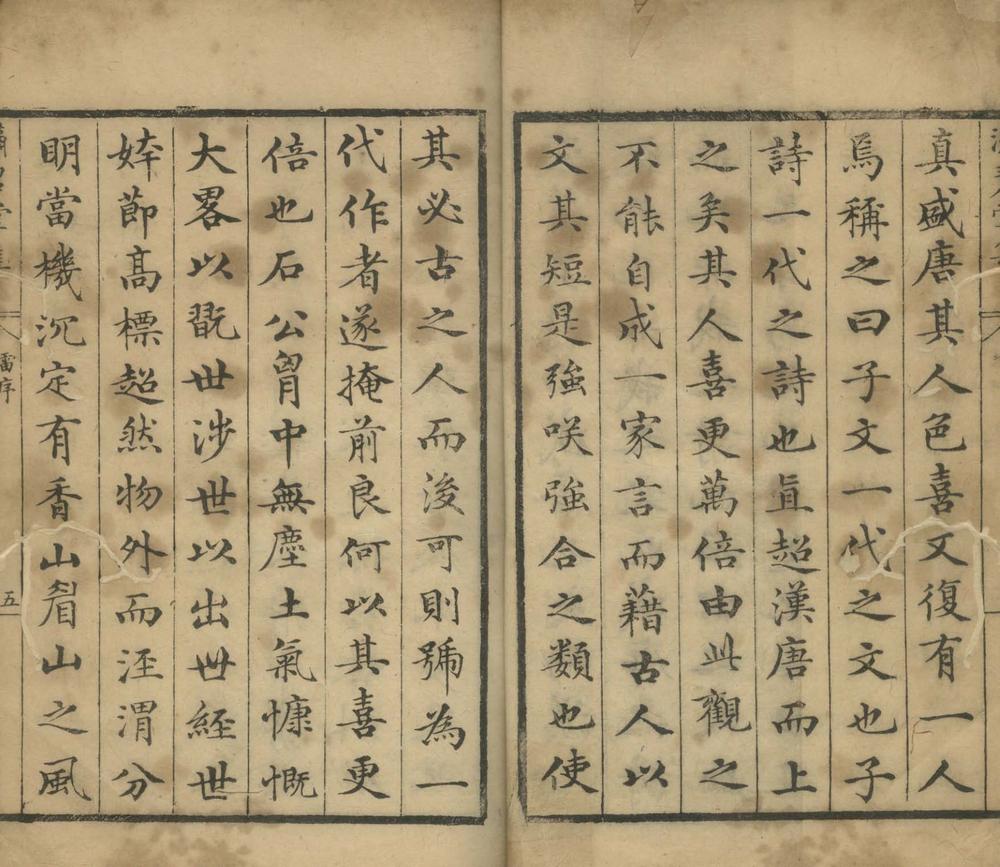 真盛唐其人色喜又復有一人
焉稱之曰子文一代之文也子
詩一代之詩也直超漢唐而上
之矣其人喜更萬倍由此觀之
不能自成一家言而藉古人以
文其短是強咲強合之類也使
其必古之人而後可則號為一
代作者遂掩前良何以其喜更
倍也石公胷中無塵土氣慷慨
大畧以翫世涉世以出世經世
姱節高標超然物外而涇渭分
明當機沉定有香山眉山之風
雷序
五